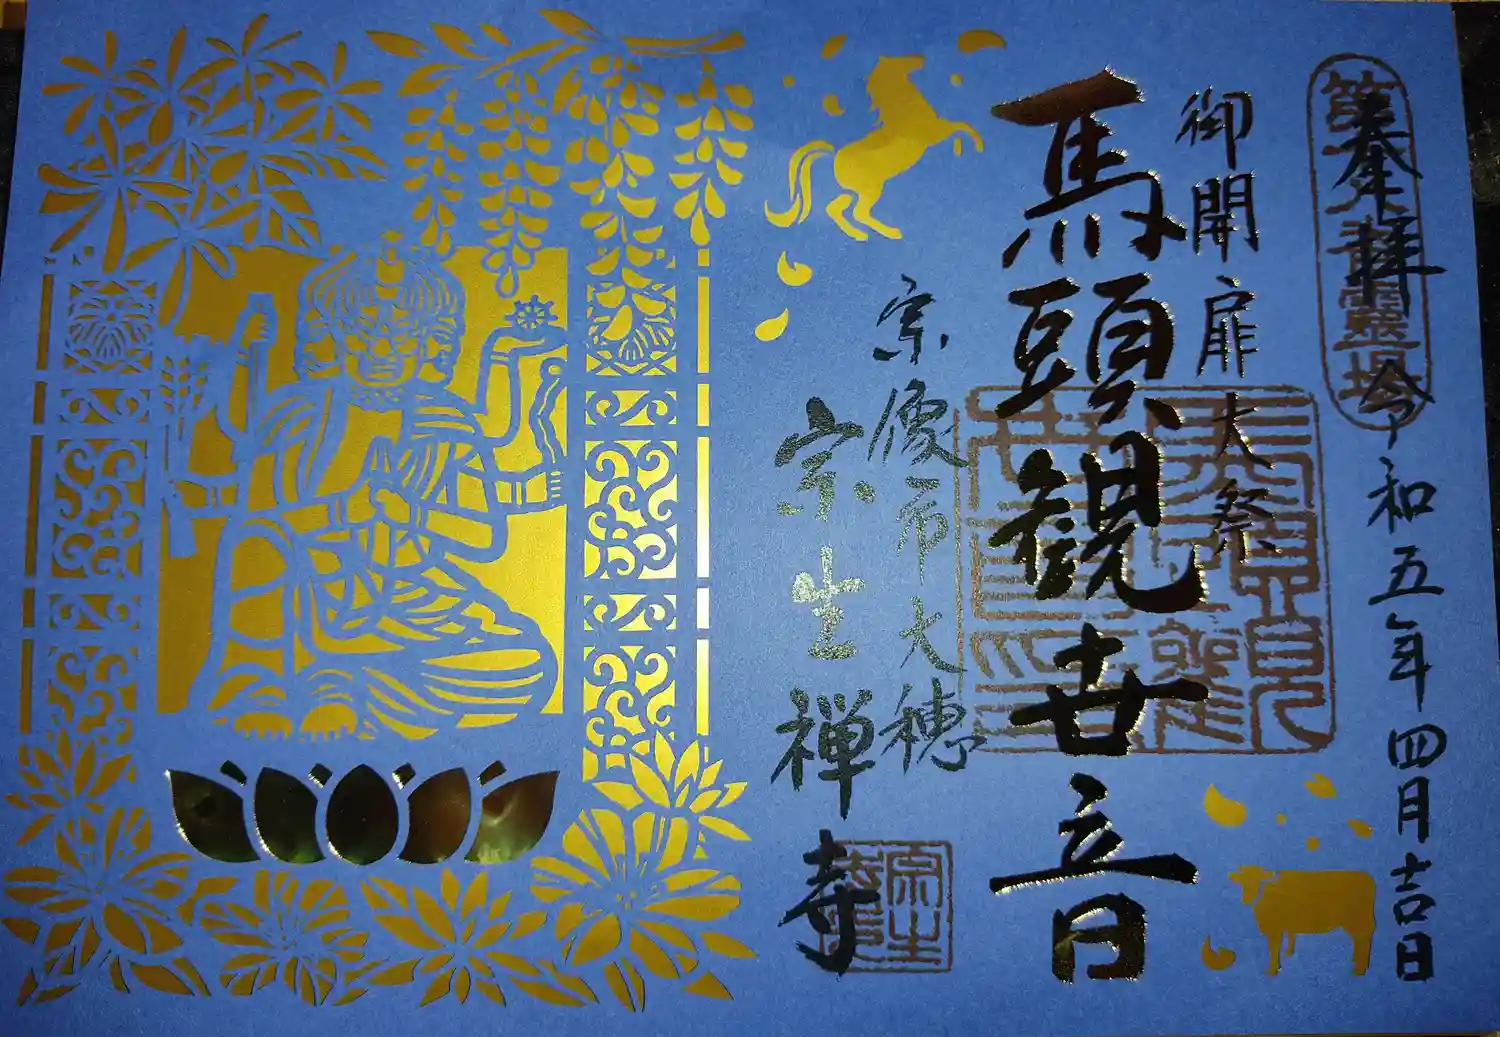 奉拝
令和五年四月吉日
御開扉大祭
馬頭観世音
宗像市大穂
宗生禅寺